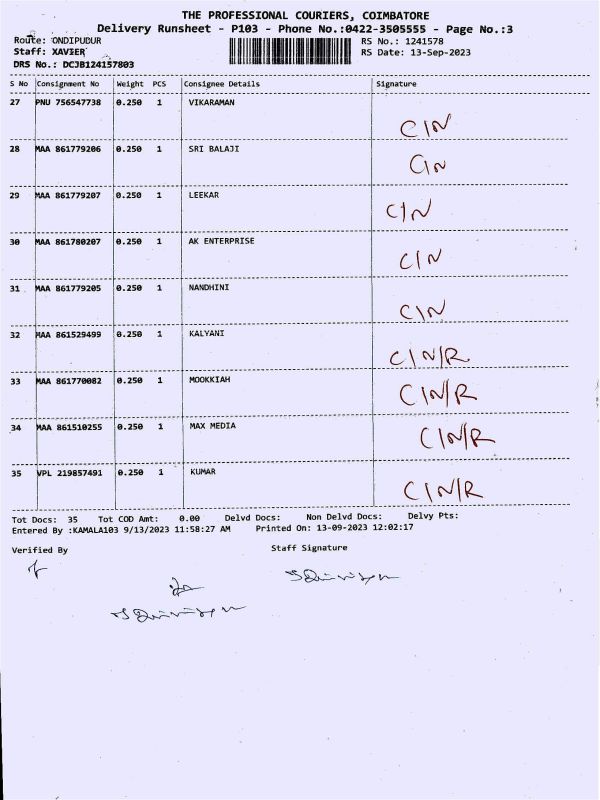 THE PROFESSIONAL COURIERS, COIMBATORE
Delivery Runsheet - P103 - Phone No.:0422-3505555 - Page No.:3
Route: ONDIPUDUR RS No.: 1241578
Staff: XAVIER RS Date: 13-Sep-2023
DRS No.: DCJB124157803
S No Consignment No Weight PCS Consignee Details Signature
27 PNU 756547738 0.250 1 VIKARAMAN
CIN
28 MAA 861779206 0.250 1 SRI BALAJI
CIN
29 MAA 861779207 0.250 1 LEEKAR
CIN
30 MAA 861780207 0.250 1 AK ENTERPRISE
CIN
31 MAA 861779205 0.250 1 NANDHINI
CIN
32 MAA 861529499 0.250 1 KALYANI
CIN/R
33 MAA 861770082 0.250 1 MOOKKIAH
CIN/R
34 MAA 861510255 0.250 1 MAX MEDIA
CIN/R
35 VPL 219857491 0.250 1 KUMAR
CIN/R
Tot Docs: 35 Tot COD Amt: 0.00 Delvd Docs: Non Delvd Docs: Delvy Pts:
Entered By :KAMALA103 9/13/2023 11:58:27 AM Printed On: 13-09-2023 12:02:17
Verified By Staff Signature